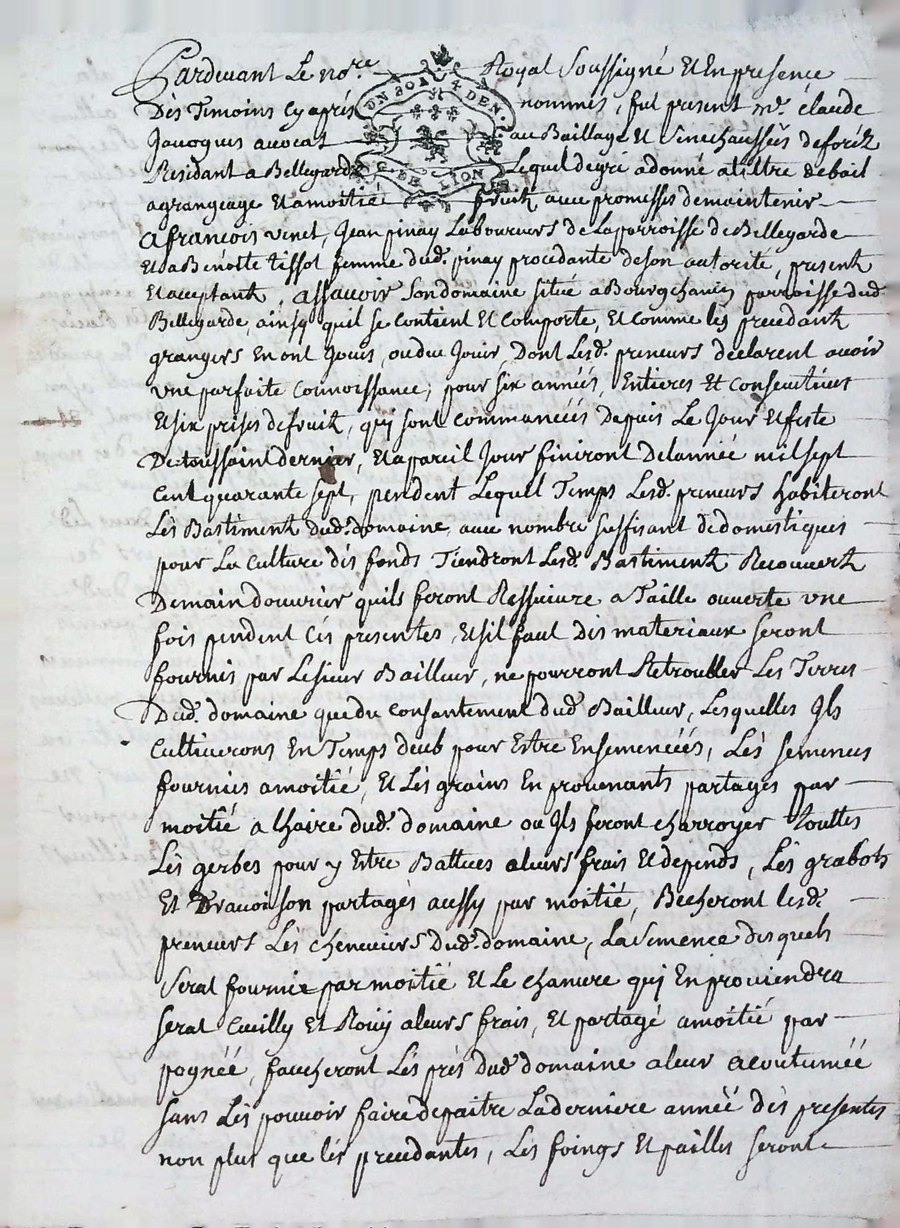 Pardevant Le no.re Royal Soussigné Et En presence
Dès Temoins Cy après nommès, fut present m.e claude
Jacoques avocat au Baillage Et Senechaussèè de forêz
Residant a Bellegarde Lequel degré a donné a tiltre de bail
a grangeage Et a moitié fruit avec promesses de maintenir
A francois vinet, Jean pinay Laboureurs de La parroisse de Bellegarde
Et a Benoîte tissot femme dud. pinay procedante de son autorité, present
Et acceptant, assavoir Son domaine situé a Bourgchanin parroisse dud.
Bellegarde, ainsy quil se contient Et comporte, Et comme les precedant
grangers En ont Jouis, ou dû Jouir, Dont Lesd. preneurs declarent avoir
vne parfaite connoissance, pour six années, Entieres Et consecutives
Et six prises de fruit, quj sont commancéés Depuis Le Jour Et feste
De toussaint dernier, Et a pareil Jour finiront De lannéé mil sept
Cent quarante sept, pendent Lequel Temps Lesd. preneurs habiteront
Lès Bastiment dud. domaine avec nombre suffisant de domestiques
pour La culture dès fonds Tiendront Lesd. Bastiment Recouvert
De main douvrier quils feront Ressuivre a Taille ouverte vne
fois pendent Cès presentes, Et sil faut Dès materiaux seront
fournis par Le sieur Bailleur, ne pourront Retroubler Les Terres
Dud. domaine que du consantement dud. Bailleur, Lesquelles Ils
Cultiverons En Temps deub pour Estre Ensemencéés, Lès semences
fournies a moitié, Et Lès grains En provenants partagès par
moitié a lhaire dud. domaine ou Ils feront charroyer touttes
Lès gerbes pour y Estre Battues a leurs frais Et depends, Lès grabots
Et partagès aussy par moitié, Becheront lesd.
preneurs Lès cheneviers dud. domaine, La semence desquels
Serat fournie par moitié Et Le chanvre quj En proviendra
serat Cuilly Et Rouÿ a leurs frais, Et partagé a moitié par
pognéé, faucheront Lès près dud. domaine a leur acoutuméé
sans Lès pouvoir faire depaitre La derniere annéé dès presentes
non plus que lès precedantes, Lès foings Et pailles seront
UN SOL 4 DEN.
G. DE LYON